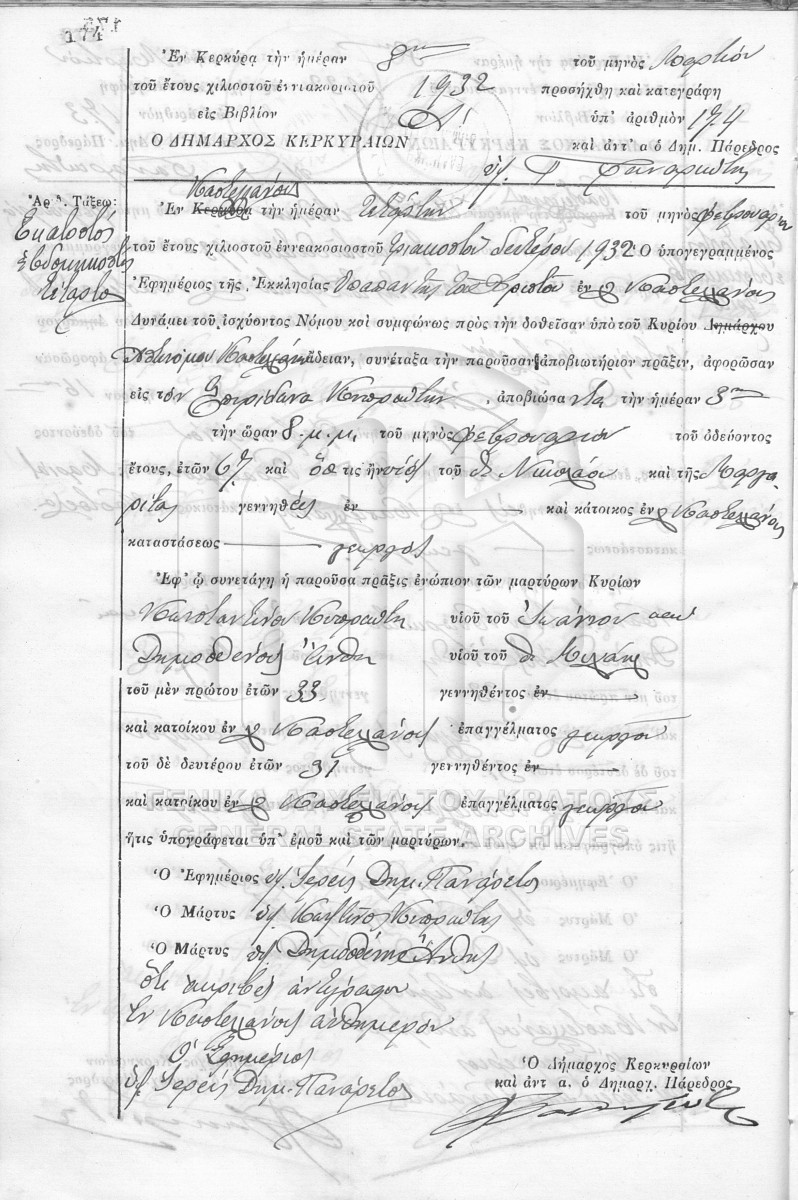 174
Ἐν Κερκύρᾳ τὴν ἡμέραν 8ην τοῦ μηνὸς Μαρτίου
τοῦ ἔτους χιλιοστοῦ ἐννιακοσιοστοῦ 1932 προσήχθη καὶ κατεγράφη
εἰς Βιβλίον Α' ὑπ' ἀριθμὸν 174
Ο ΔΗΜΑΡΧΟΣ ΚΕΡΚΥΡΑΙΩΝ καὶ ἀντ' α ὁ Δημ. Πάρεδρος
Καστελλάνοις
Ἀρ. Τάξεως:
Ἑκατοστὸν
ἑβδομηκοστὸν
τέταρτον
Ἐν Κερκύρᾳ τὴν ἡμέραν τετάρτην τοῦ μηνὸς Φεβρουαρίου
τοῦ ἔτους χιλιοστοῦ ἐννεακοσιοστοῦ τριακοστοῦ δευτέρου 1932 Ὁ ὑπογεγραμμένος
Ἐφημέριος τῆς Ἐκκλησίας Ὑπαπαντῆς τοῦ Χριστοῦ ἐν Καστελλάνοις
Δυνάμει τοῦ ἰσχύοντος Νόμου καὶ συμφώνως πρὸς τὴν δοθεῖσαν ὑπὸ τοῦ Κυρίου Δημάρχου
Ἀστυνόμου Καστελλάνων ἄδειαν, συνέταξα τὴν παροῦσαν ἀποβιωτήριον πρᾶξιν, ἀφορῶσαν
εἰς τὸν Σπυρίδωνα Κυπριώτην, ἀποβιώσαντα τὴν ἡμέραν 3ην
τὴν ὥραν 8 μ.μ. τοῦ μηνὸς Φεβρουαρίου τοῦ ὁδεύοντος
ἔτους, ἐτῶν 67 καὶ ὅστις ἦν υἱὸς τοῦ Νικολάου καὶ τῆς Μαργα
ρίτας γεννηθεὶς ἐν καὶ κάτοικος ἐν Καστελλάνοις
καταστάσεως γεωργὸς
Ἐφ' ᾧ συνετάγη ἡ παροῦσα πρᾶξις ἐνώπιον τῶν μαρτύρων Κυρίων
Κωνσταντίνου Κυπριώτη υἱοῦ τοῦ Ἰωάννου καὶ
Δημοσθένους Ἄνθη υἱοῦ τοῦ Μιχαὴλ
τοῦ μὲν πρώτου ἐτῶν 33 γεννηθέντος ἐν
καὶ κατοίκου ἐν Καστελλάνοις ἐπαγγέλματος γεωργοῦ
τοῦ δὲ δευτέρου ἐτῶν 31 γεννηθέντος ἐν
καὶ κατοίκου ἐν Καστελλάνοις ἐπαγγέλματος γεωργοῦ
ΓΕΝΙΚΑ ΑΡΧΕΙΑ ΤΟΥ ΚΡΑΤΟΥΣ
GENERAL STATE ARCHIVES
ἥτις ὑπογράφεται ὑπ' ἐμοῦ καὶ τῶν μαρτύρων.
Ὁ Ἐφημέριος Ἱερεὺς Δημ. Πανάρετος
Ὁ Μάρτυς Κωνστῖνος Κυπριώτης
Ὁ Μάρτυς Δημοσθένης Ἄνθης
ὅτι ἀκριβὲς ἀντίγραφον
Ἐν Καστελλάνοις αὐθημερὸν
Ὁ Ἐφημέριος
Ἱερεὺς Δημ. Πανάρετος
Ὁ Δήμαρχος Κερκυραίων
καὶ ἀντ α. ὁ Δημαρχ. Πάρεδρος